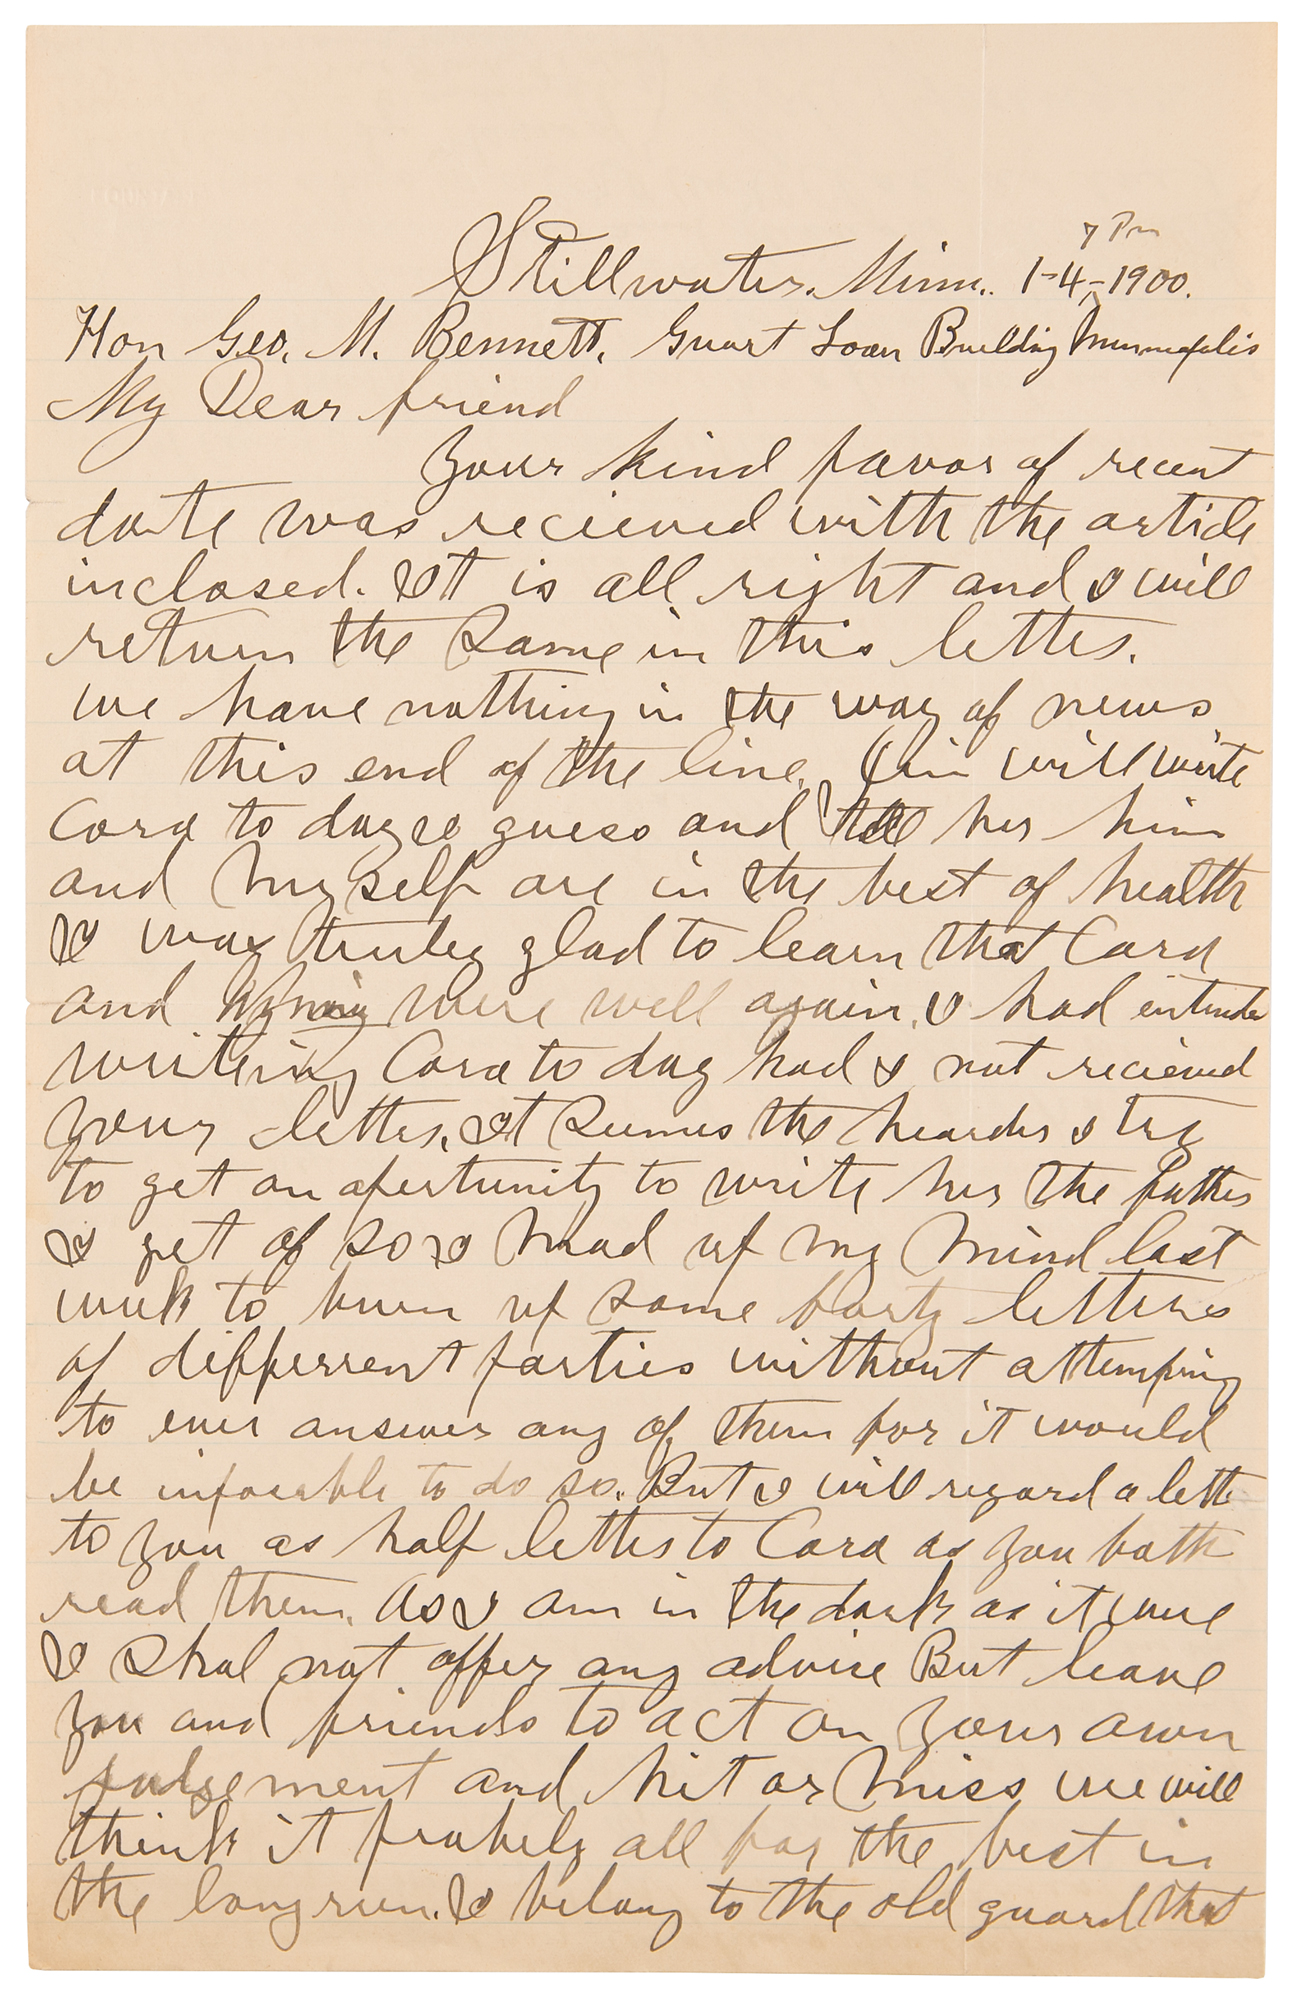 7 Pm
Stillwater. Minn.. 1-4,-1900.
Hon Geo. M. Bennett, Guart Loan Building Minneapolis
My Dear friend
Your kind favor of recent
date was recieved with the article
inclosed. It is all right and I will
return the same in this letter.
we have nothing in the way of news
at this end of the line. Jim will write
Cora to day I guess and tell her him
and my self are in the best of health
I was truley glad to learn that Cora
and were well again. I had intended
writeing Cora to day had I not recieved
your letter. It seemes the hearder I try
to get an opertunity to write her the father
I get of so I mad up my mind last
week to burn up some forty letters
of differrent parties without attemping
to ever answer any of them for it would
be imposible to do so. But I will regard a letter
to you as half letter to Cora as you both
read them. As I am in the dark as it were
I shal not offer any advice But leave
you and friends to act on your own
judgement and hit or miss we will
think it probely all for the best in
the long run. I belong to the old guard that